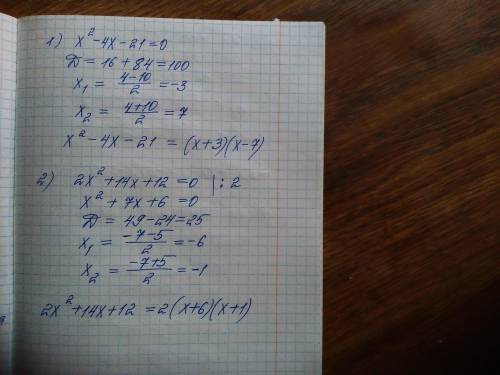 1) x² - 4x - 21 = 0
D = 16 + 84 = 100
x₁ = (4-10)/2 = -3
x₂ = (4+10)/2 = 7
x² - 4x - 21 = (x+3)(x-7)
2) 2x² + 14x + 12 = 0 |: 2
x² + 7x + 6 = 0
D = 49 - 24 = 25
x₁ = (-7-5)/2 = -6
x₂ = (-7+5)/2 = -1
2x² + 14x + 12 = 2(x+6)(x+1)